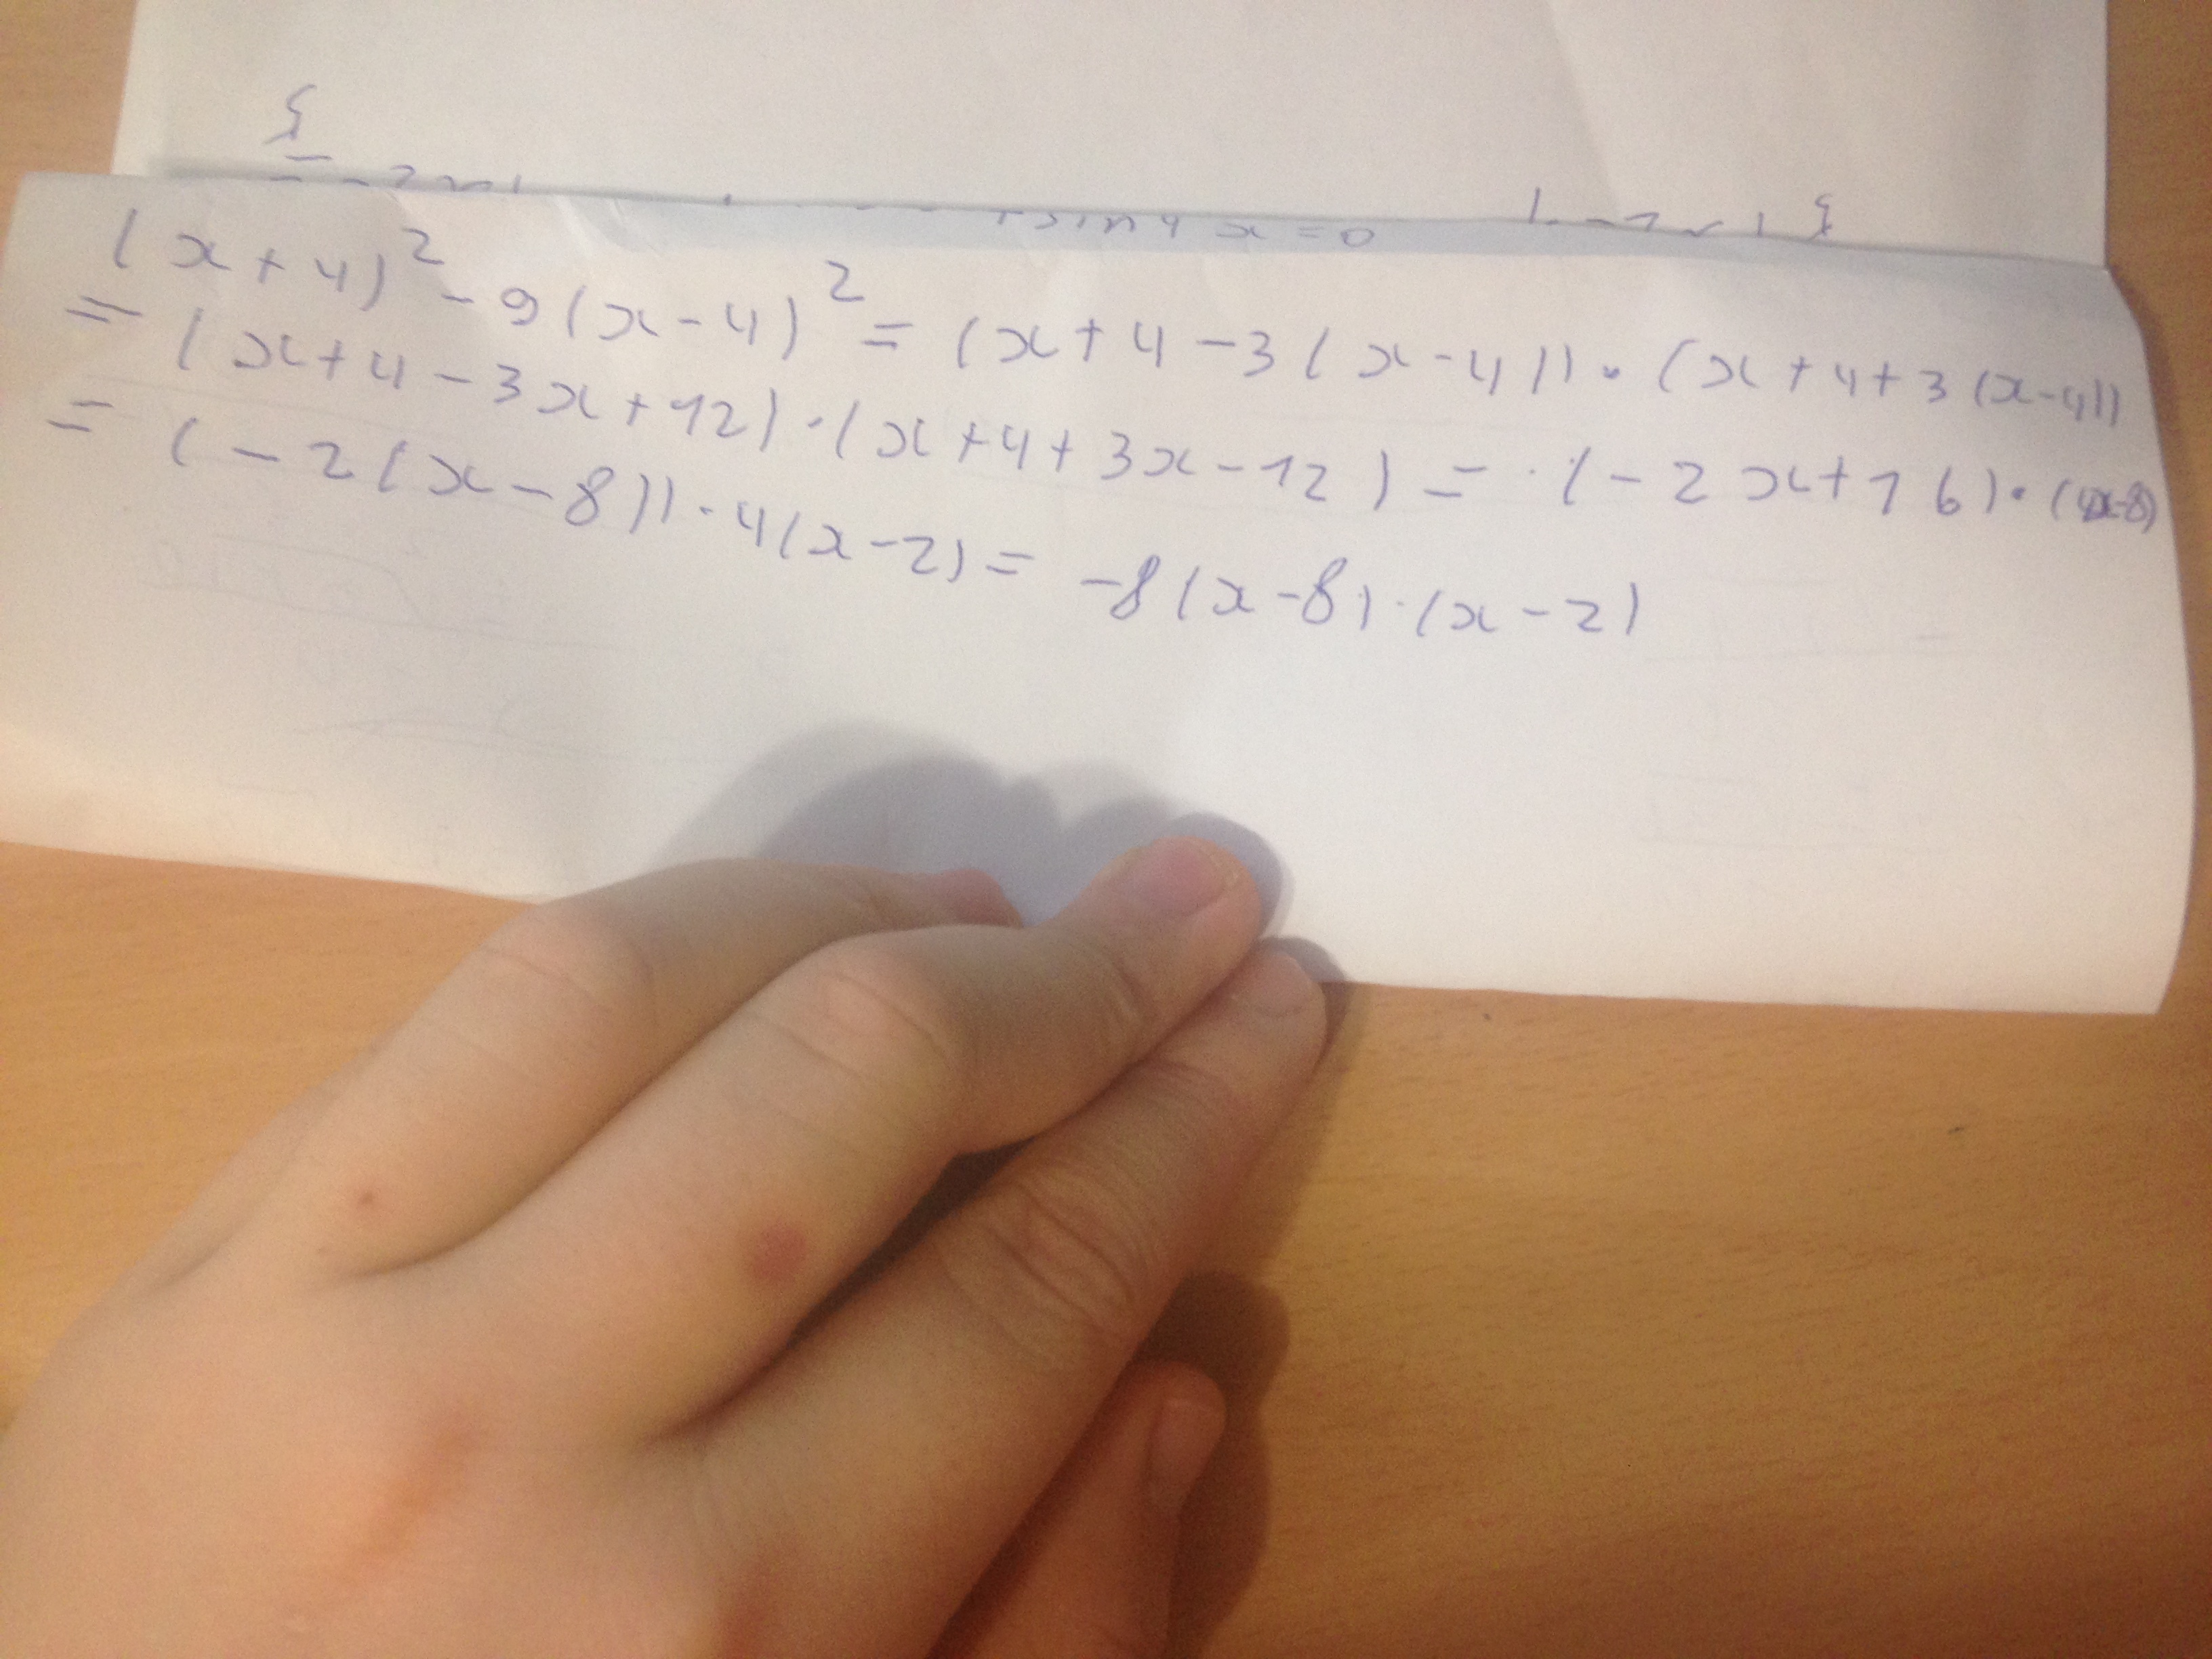 +sin4x=0
(x+4)²-9(x-4)²=(x+4-3(x-4))·(x+4+3(x-4))
=(x+4-3x+12)·(x+4+3x-12)=·(-2x+16)·(4x-8)
=(-2(x-8))·4(x-2)=-8(x-8)·(x-2)